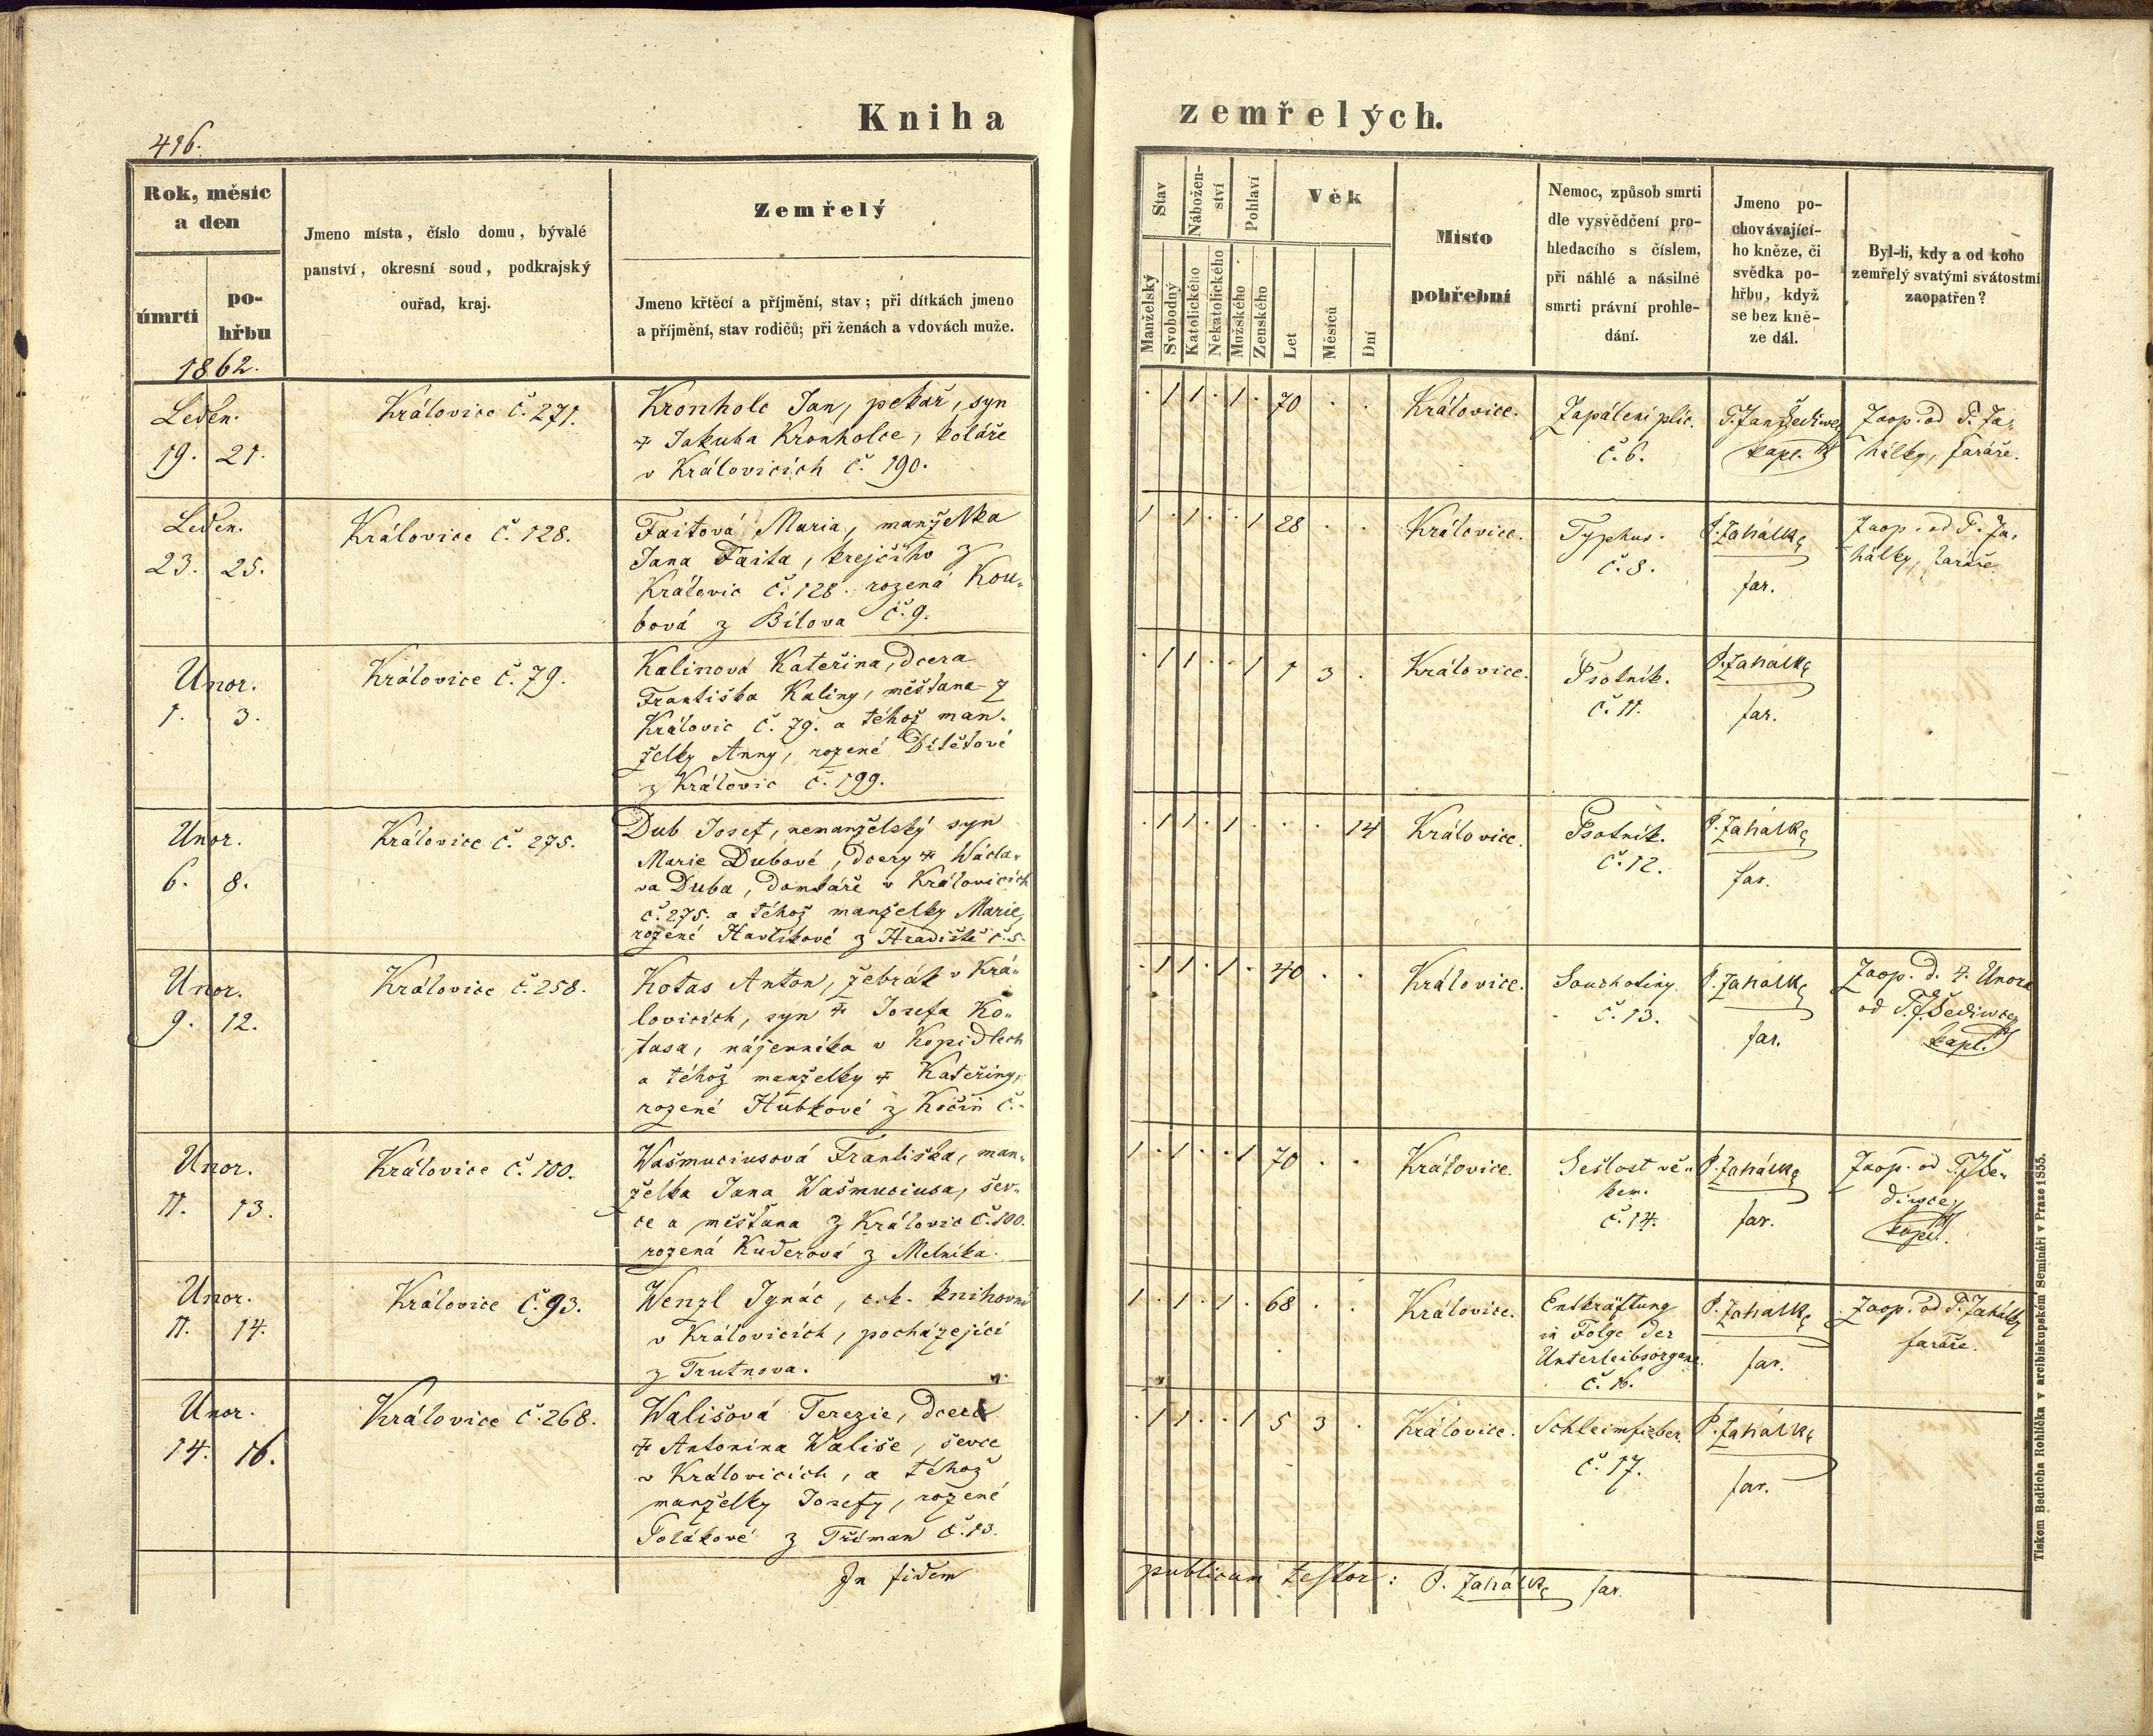 Kniha zemřelých.
496.
Rok, měsíc
a den
úmrtí
po-
hřbu
1862.
Jmeno místa, číslo domu, bývalé
panství, okresní soud, podkrajský
ouřad, kraj.
Zemřelý
Jmeno křtěcí a příjmění, stav; při dítkách jmeno
a příjmění, stav rodičů; při ženách a vdovách muže.
Stav
Nábožen-
ství
Pohlaví
Věk
Manželský
Svobodný
Katolického
Nekatolického
Mužského
Ženského
Let
Měsíců
Dní
Místo
pohřební
Nemoc, způsob smrti
dle vysvědčení pro-
hledacího s číslem,
při náhlé a násilné
smrti právní prohle-
dání.
Jmeno po-
chovávající-
ho kněze, či
svědka po-
hřbu, když
se bez kně-
ze dál.
Byl-li, kdy a od koho
zemřelý svatými svátostmi
zaopatřen?
Leden.
19. 21.
Královice č. 271.
Kronholc Jan, pekař, syn
† Jakuba Kronholce, koláře
v Královicích č. 190.
. 1 1 . 1 . 70 . .
Královice.
Zapálení plic.
č. 6.
P. Jan Šediwey
kapl.
Zaop. od P. Za-
hálky, faráře.
Leden.
23. 25.
Královice č. 128.
Faitová Maria, manželka
Jana Faita, krejčího z
Královic č. 128. rozená Kou-
bová z Bílova č. 9.
1 . 1 . . 1 28 . .
Královice.
Typhus.
č. 8.
P. Zahálka
far.
Zaop. od P. Za-
hálky, faráře.
Unor.
1. 3.
Královice č. 79.
Kalinová Kateřina, dcera
Františka Kaliny, měšťana z
Královic č. 79. a téhož man-
želky Anny, rozené Dítětové
z Královic č. 199.
. 1 1 . . 1 1 3 .
Královice.
Psotník.
č. 11.
P. Zahálka
far.
Unor.
6. 8.
Královice č. 275.
Dub Josef, nemanželský syn
Marie Dubové, dcery † Wácla-
va Duba, domkáře v Královicích
č. 275. a téhož manželky Marie,
rozené Havlíkové z Hradiště č. 5.
. 1 1 . 1 . . . 14
Královice.
Psotník.
č. 12.
P. Zahálka
far.
Unor.
9. 12.
Královice č. 258.
Kotas Anton, žebrák v Krá-
lovicích, syn † Josefa Ko-
tasa, nájemníka v Kopidlech
a téhož manželky † Kateřiny,
rozené Hubkové z Kočín č.-
. 1 1 . 1 . 40 . .
Královice.
Souchotiny.
č. 13.
P. Zahálka
far.
Zaop. d. 4. Unora
od P. J. Šediwey
kapl.
Unor.
11. 13.
Královice č. 100.
Wašmuciusová Františka, man-
želka Jana Wašmuciusa, šev-
ce a měšťana z Královic č. 100.
rozená Kuderová z Melníka.
1 . 1 . . 1 70 . .
Královice.
Sešlost vě-
kem.
č. 14.
P. Zahálka
far.
Zaop. od P. J. Še-
diwey
kapl.
Unor.
11. 14.
Královice č. 93.
Wenzl Ignác, c. k. knihovní
v Královicích, pocházející
z Trutnova.
1 . 1 . 1 . 68 . .
Královice.
Entkräftung
in Folge der
Unterleibsorgane.
č. 16.
P. Zahálka
far.
Zaop. od P. Zahálky
faráře.
Unor.
14. 16.
Královice č. 268.
Wališová Terezie, dcera
† Antonína Wališe, ševce
v Královicích, a téhož
manželky Josefy, rozené
Polákové z Tříman č. 13.
. 1 1 . . 1 5 3 .
Královice.
Schleimfieber.
č. 17.
P. Zahálka
far.
In fidem publicam testor: P. Zahálka far.
Tiskem Bedřicha Rohlíčka v arcibiskupském Semináři v Praze 1855.